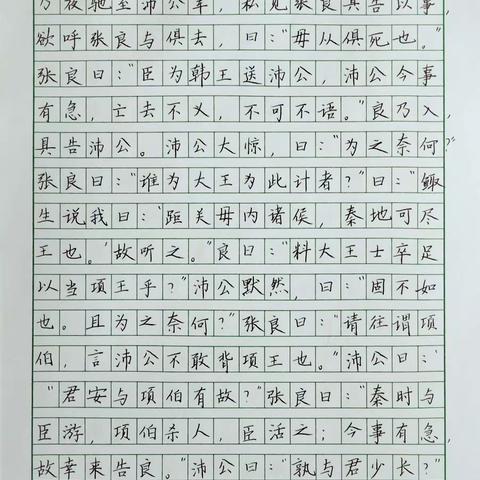 乃夜驰至沛公军，私见张良具告以事，
欲呼张良与俱去，曰："毋从俱死也。"
张良曰："臣为韩王送沛公，沛公今事
有急，亡去不义，不可不语。"良乃入，
具告沛公。沛公大惊，曰："为之奈何？"
张良曰："谁为大王为此计者？"曰："鲰
生说我曰：'距关毋内诸侯，秦地可尽
王也。'故听之。"良曰："料大王士卒足
以当项王乎？"沛公默然，曰："固不如
也。且为之奈何？"张良曰："请往谓项
伯，言沛公不敢背项王也。"沛公曰："
"君安与项伯有故？"张良曰："秦时与
臣游，项伯杀人，臣活之；今事有急，
故幸来告良。"沛公曰："孰与君少长？"